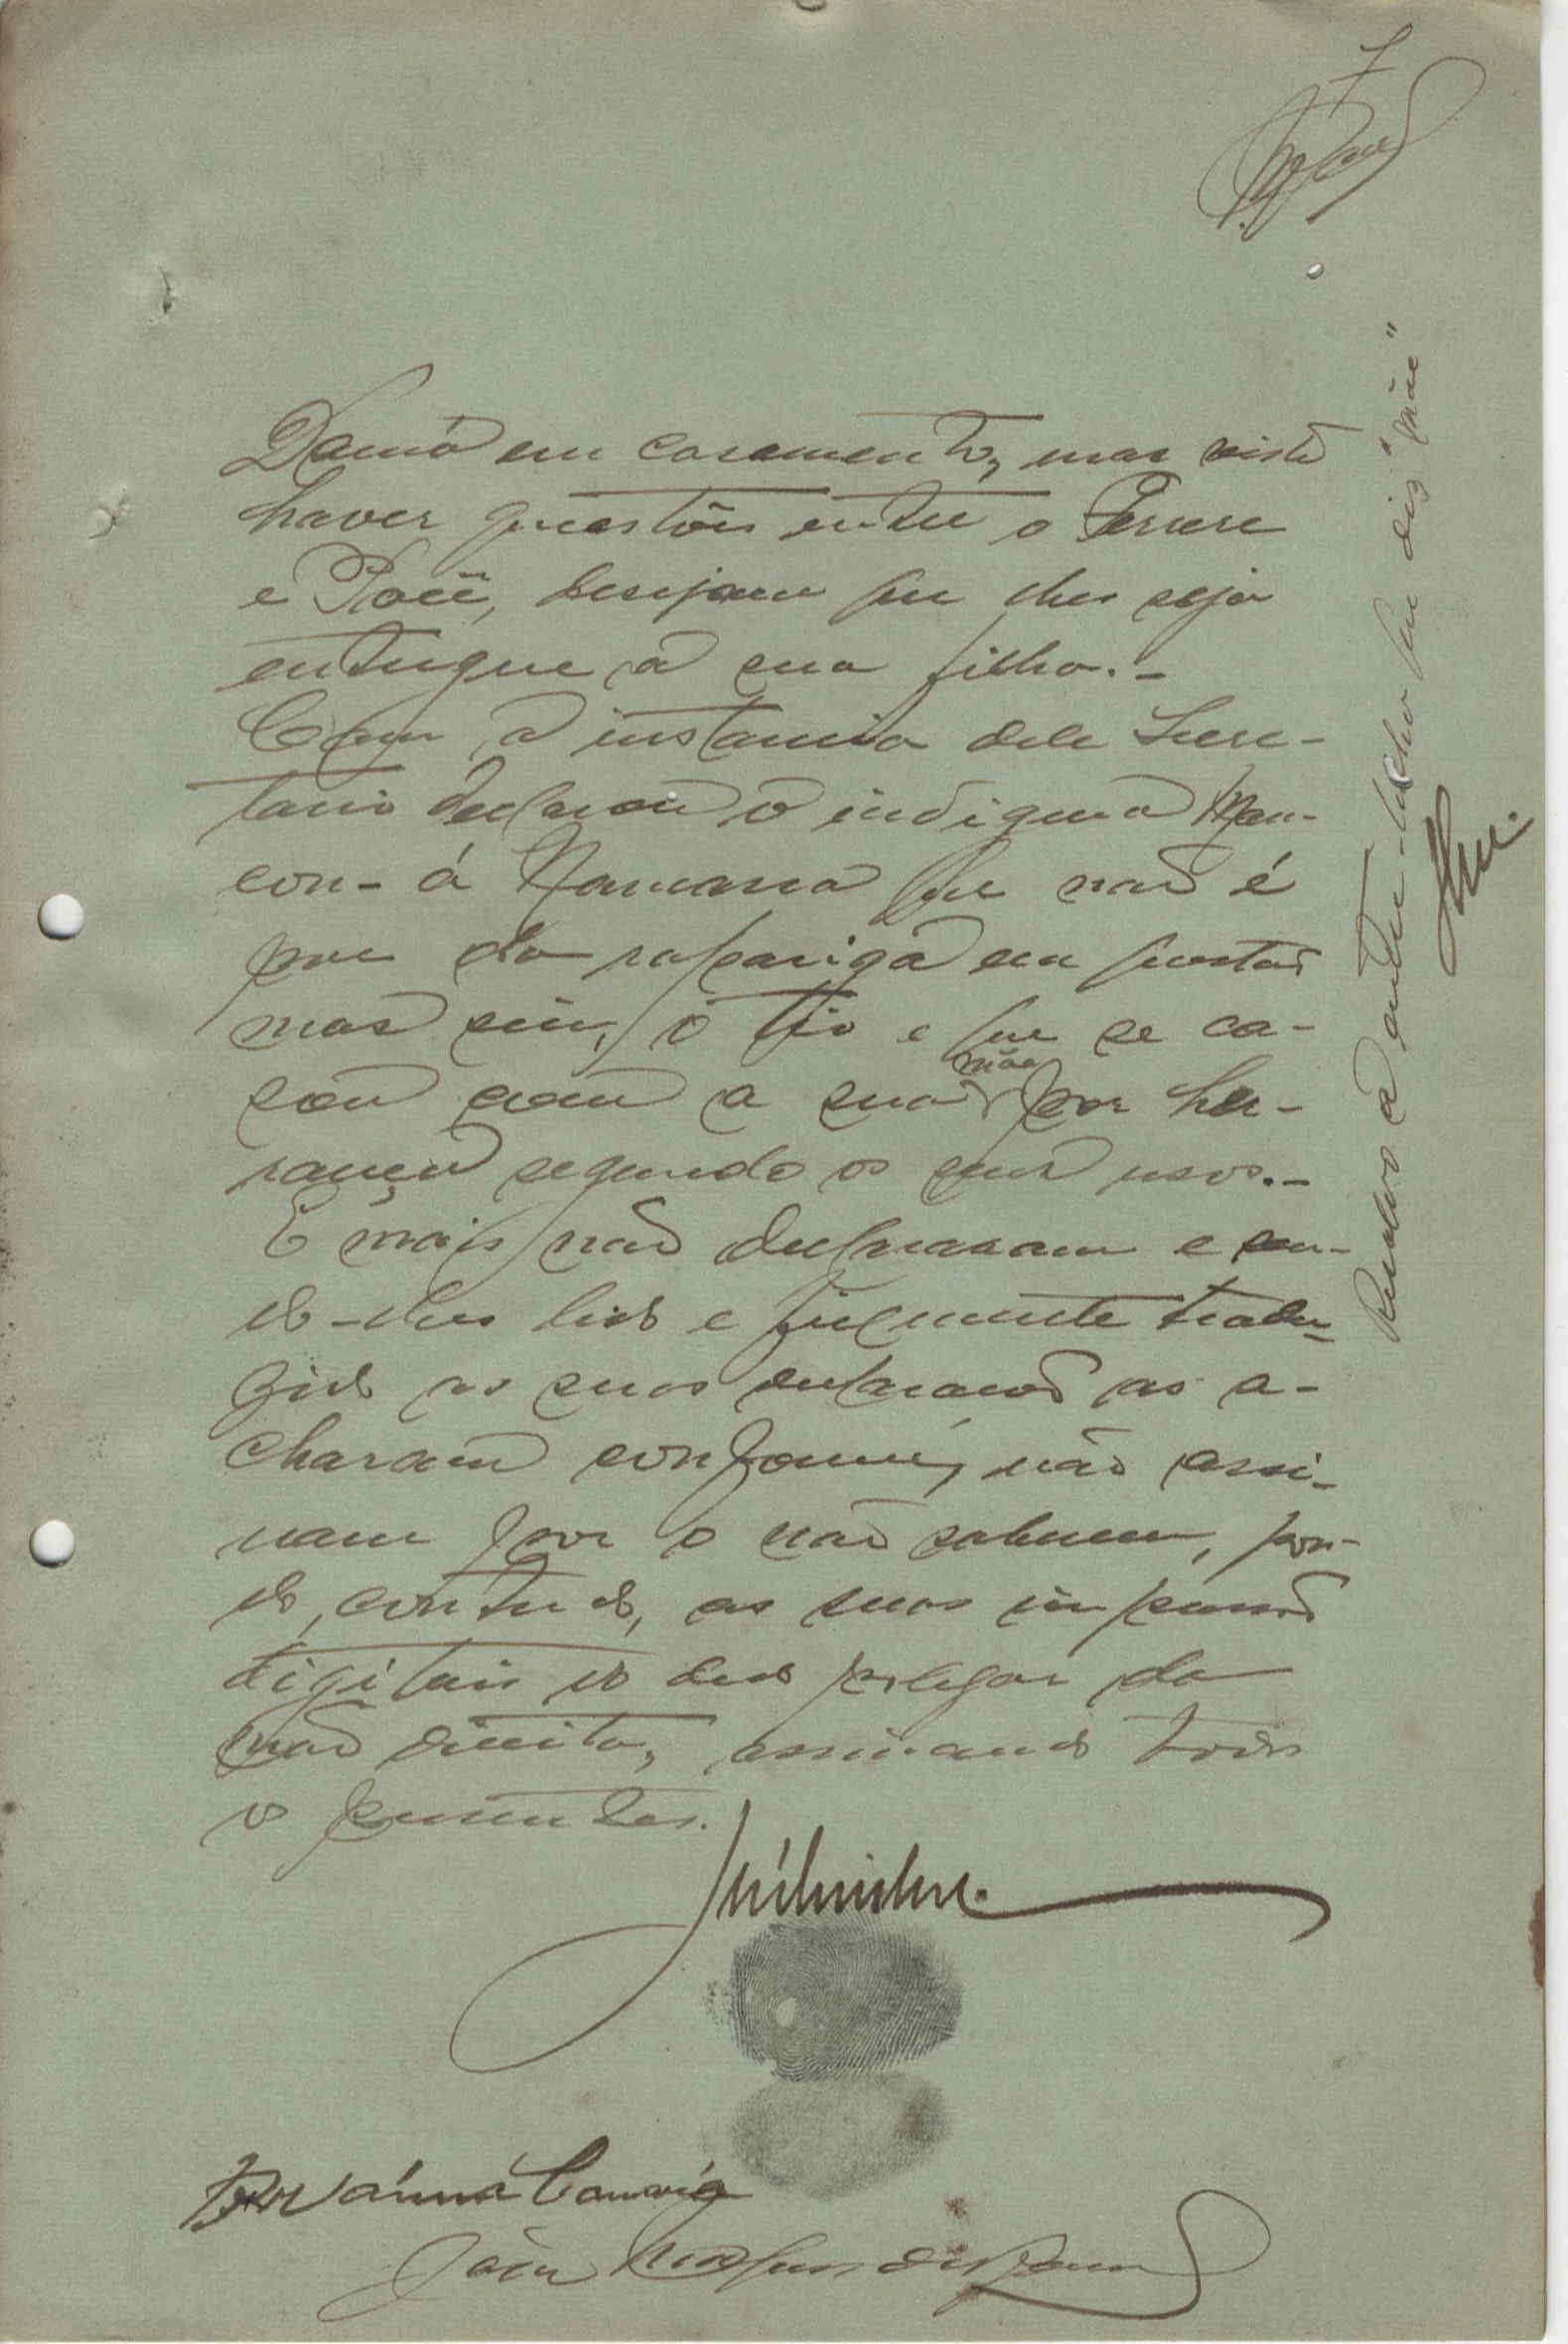 7
Damá em casamento, mas visto
haver questões entre o Perere
e Pacú, desejam que lhes seja
entregue a sua filha.-
E a instancia dele Secre-
tario declarou o indigena Man-
con-á Namara que não é
pae da rapariga em questão
mas sim, o tio e que se ca-
sou com a sua mãe por he-
rança segundo os seus usos.-
E mais não declararam e sen-
do-lhes lido e fielmente tradu-
zido as suas declarações as a-
charam conforme, não assi-
nam por o não saberem, pon-
do, contudo, as suas impressões
digitais do dedo polegar da
mão direita, assinando todos
os presentes.
Resalvo a entre-linha que diz "mãe"